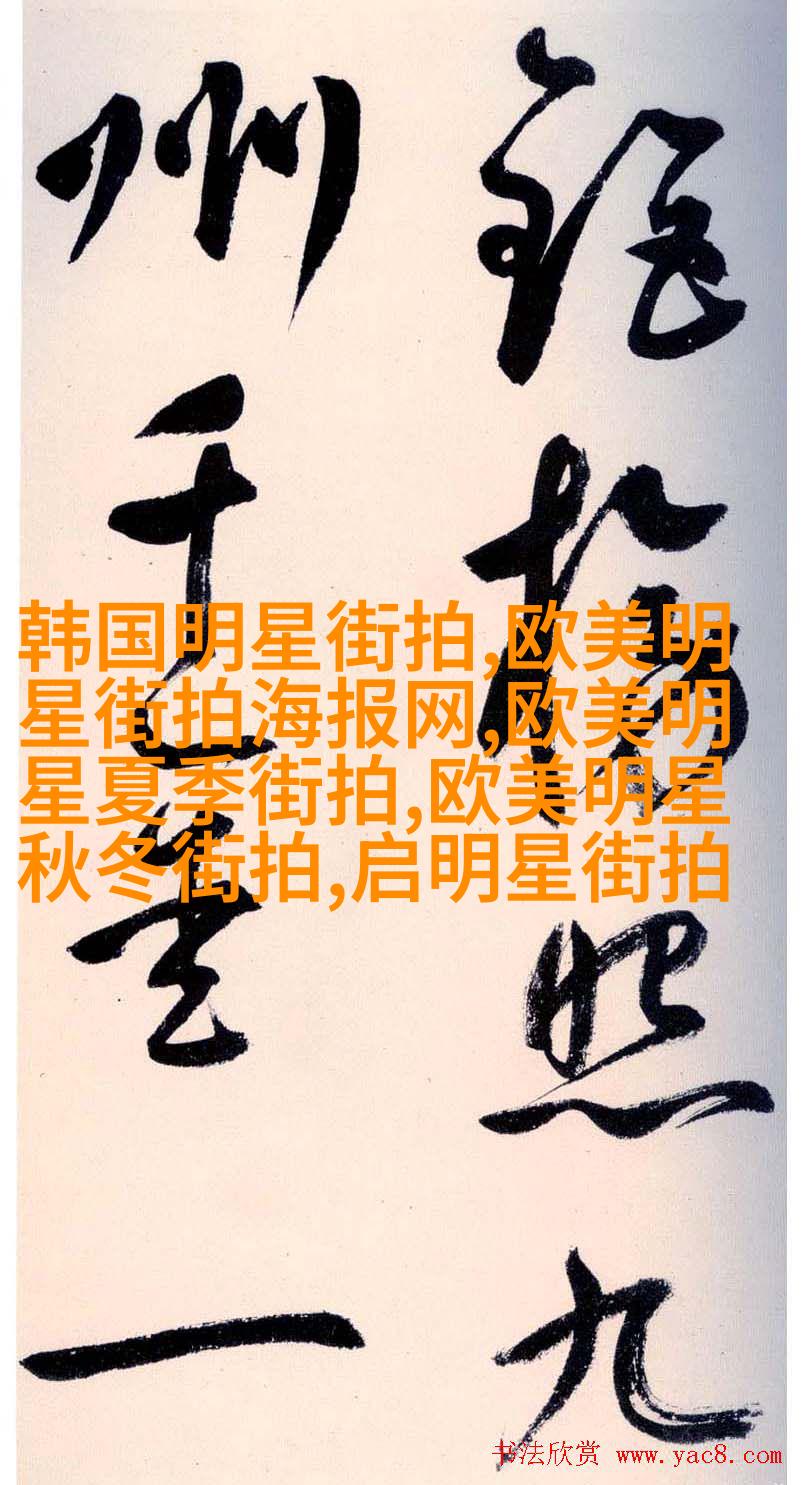 照九
州千 一
韩国明星街拍,欧美明
星街拍海报网,欧美明
星夏季街拍,欧美明星
秋冬街拍,启明星街拍
书法欣赏 www.yac8.com